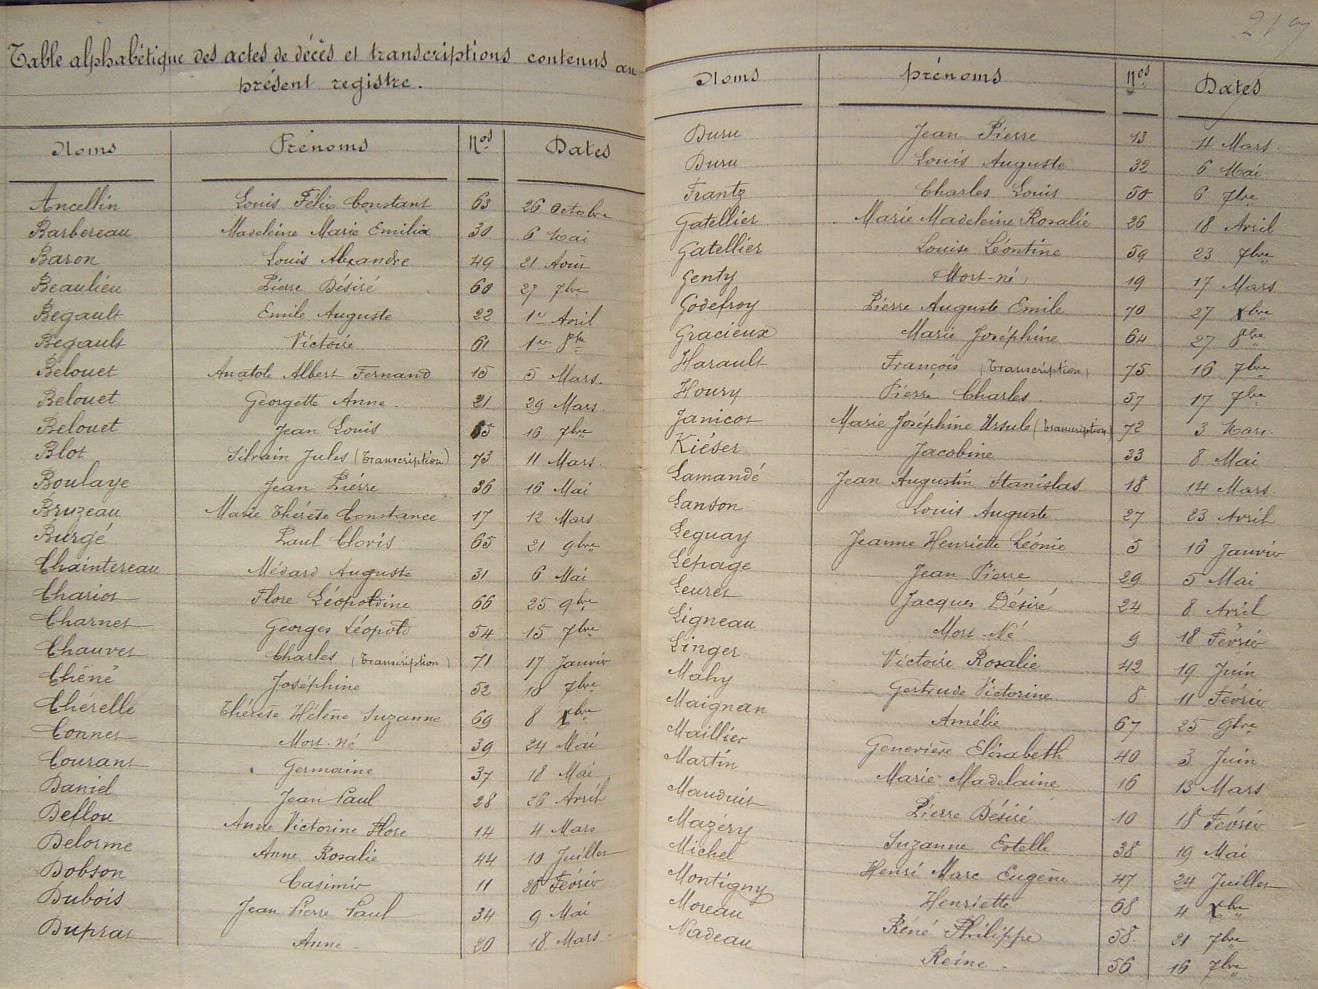 Table alphabétique des actes de décès et transcriptions contenus au
présent registre.
Noms Prénoms Nos Dates
Ancellin Louis Félix Constant 63 26 Octobre
Barbereau Madeleine Marie Emilia 30 6 Mai
Baron Louis Alexandre 49 21 Août
Beaulieu Pierre Désiré 60 27 7bre
Begault Emile Auguste 22 1er Avril
Begault Victoire 61 1er 8bre
Belouet Anatole Albert Fernand 15 5 Mars.
Belouet Georgette Anne 21 29 Mars.
Belouet Jean Louis 55 16 7bre
Blot Silvain Jules (Transcription) 73 11 Mars.
Boulaye Jean Pierre 36 16 Mai
Bruzeau Marie Thérèse Constance 17 12 Mars
Burgé Paul Clovis 65 21 9bre
Chaintereau Médard Auguste 31 6 Mai
Chariot Flore Léopoldine 66 25 9bre
Charnet Georges Léopold 54 15 7bre
Chauvet Charles (Transcription) 71 17 Janvier
Chéné Joséphine 52 10 7bre
Chérelle Thérèse Hélène Suzanne 69 8 Xbre
Connet Mort-né 39 24 Mai
Courant Germaine 37 18 Mai
Daniel Jean Paul 28 26 Avril
Deflou Anne Victorine Flore 14 4 Mars
Delorme Anne Rosalie 44 10 Juillet
Dobson Casimir 11 28 Février
Dubois Jean Pierre Paul 34 9 Mai
Duprat Anne 20 18 Mars
217
Noms Prénoms Nos Dates
Duru Jean Pierre 13 4 Mars.
Duru Louis Auguste 32 6 Mai
Frantz Charles Louis 50 6 7bre
Gatellier Marie Madeleine Rosalie 26 18 Avril
Gatellier Louise Léontine 59 23 7bre
Genty Mort-né 19 17 Mars
Godefroy Pierre Auguste Emile 70 27 Xbre
Gracieux Marie Joséphine 64 27 8bre
Harault François (Transcription) 75 16 7bre
Houry Pierre Charles 57 17 7bre
Janicot Marie Joséphine Ursule (Transcription) 72 3 Mars.
Kiéser Jacobine 33 8 Mai
Lamandé Jean Augustin Stanislas 18 14 Mars.
Lanson Louis Auguste 27 23 Avril
Leguay Jeanne Henriette Léonie 5 16 Janvier
Lepage Jean Pierre 29 5 Mai
Leuret Jacques Désiré 24 8 Avril
Ligneau Mort-Né 9 18 Février
Linger Victoire Rosalie 42 19 Juin
Mahy Gertrude Victorine 8 11 Février
Maignan Amélie 67 25 9bre
Maillier Geneviève Elisabeth 40 3 Juin
Martin Marie Madelaine 16 13 Mars
Mauduit Pierre Désiré 10 18 Février
Mazéry Suzanne Estelle 38 19 Mai
Michel Henri Marc Eugène 47 24 Juillet
Montigny Henriette 68 4 Xbre
Moreau Réné Philippe 58 21 7bre
Nadeau Reine 56 16 7bre